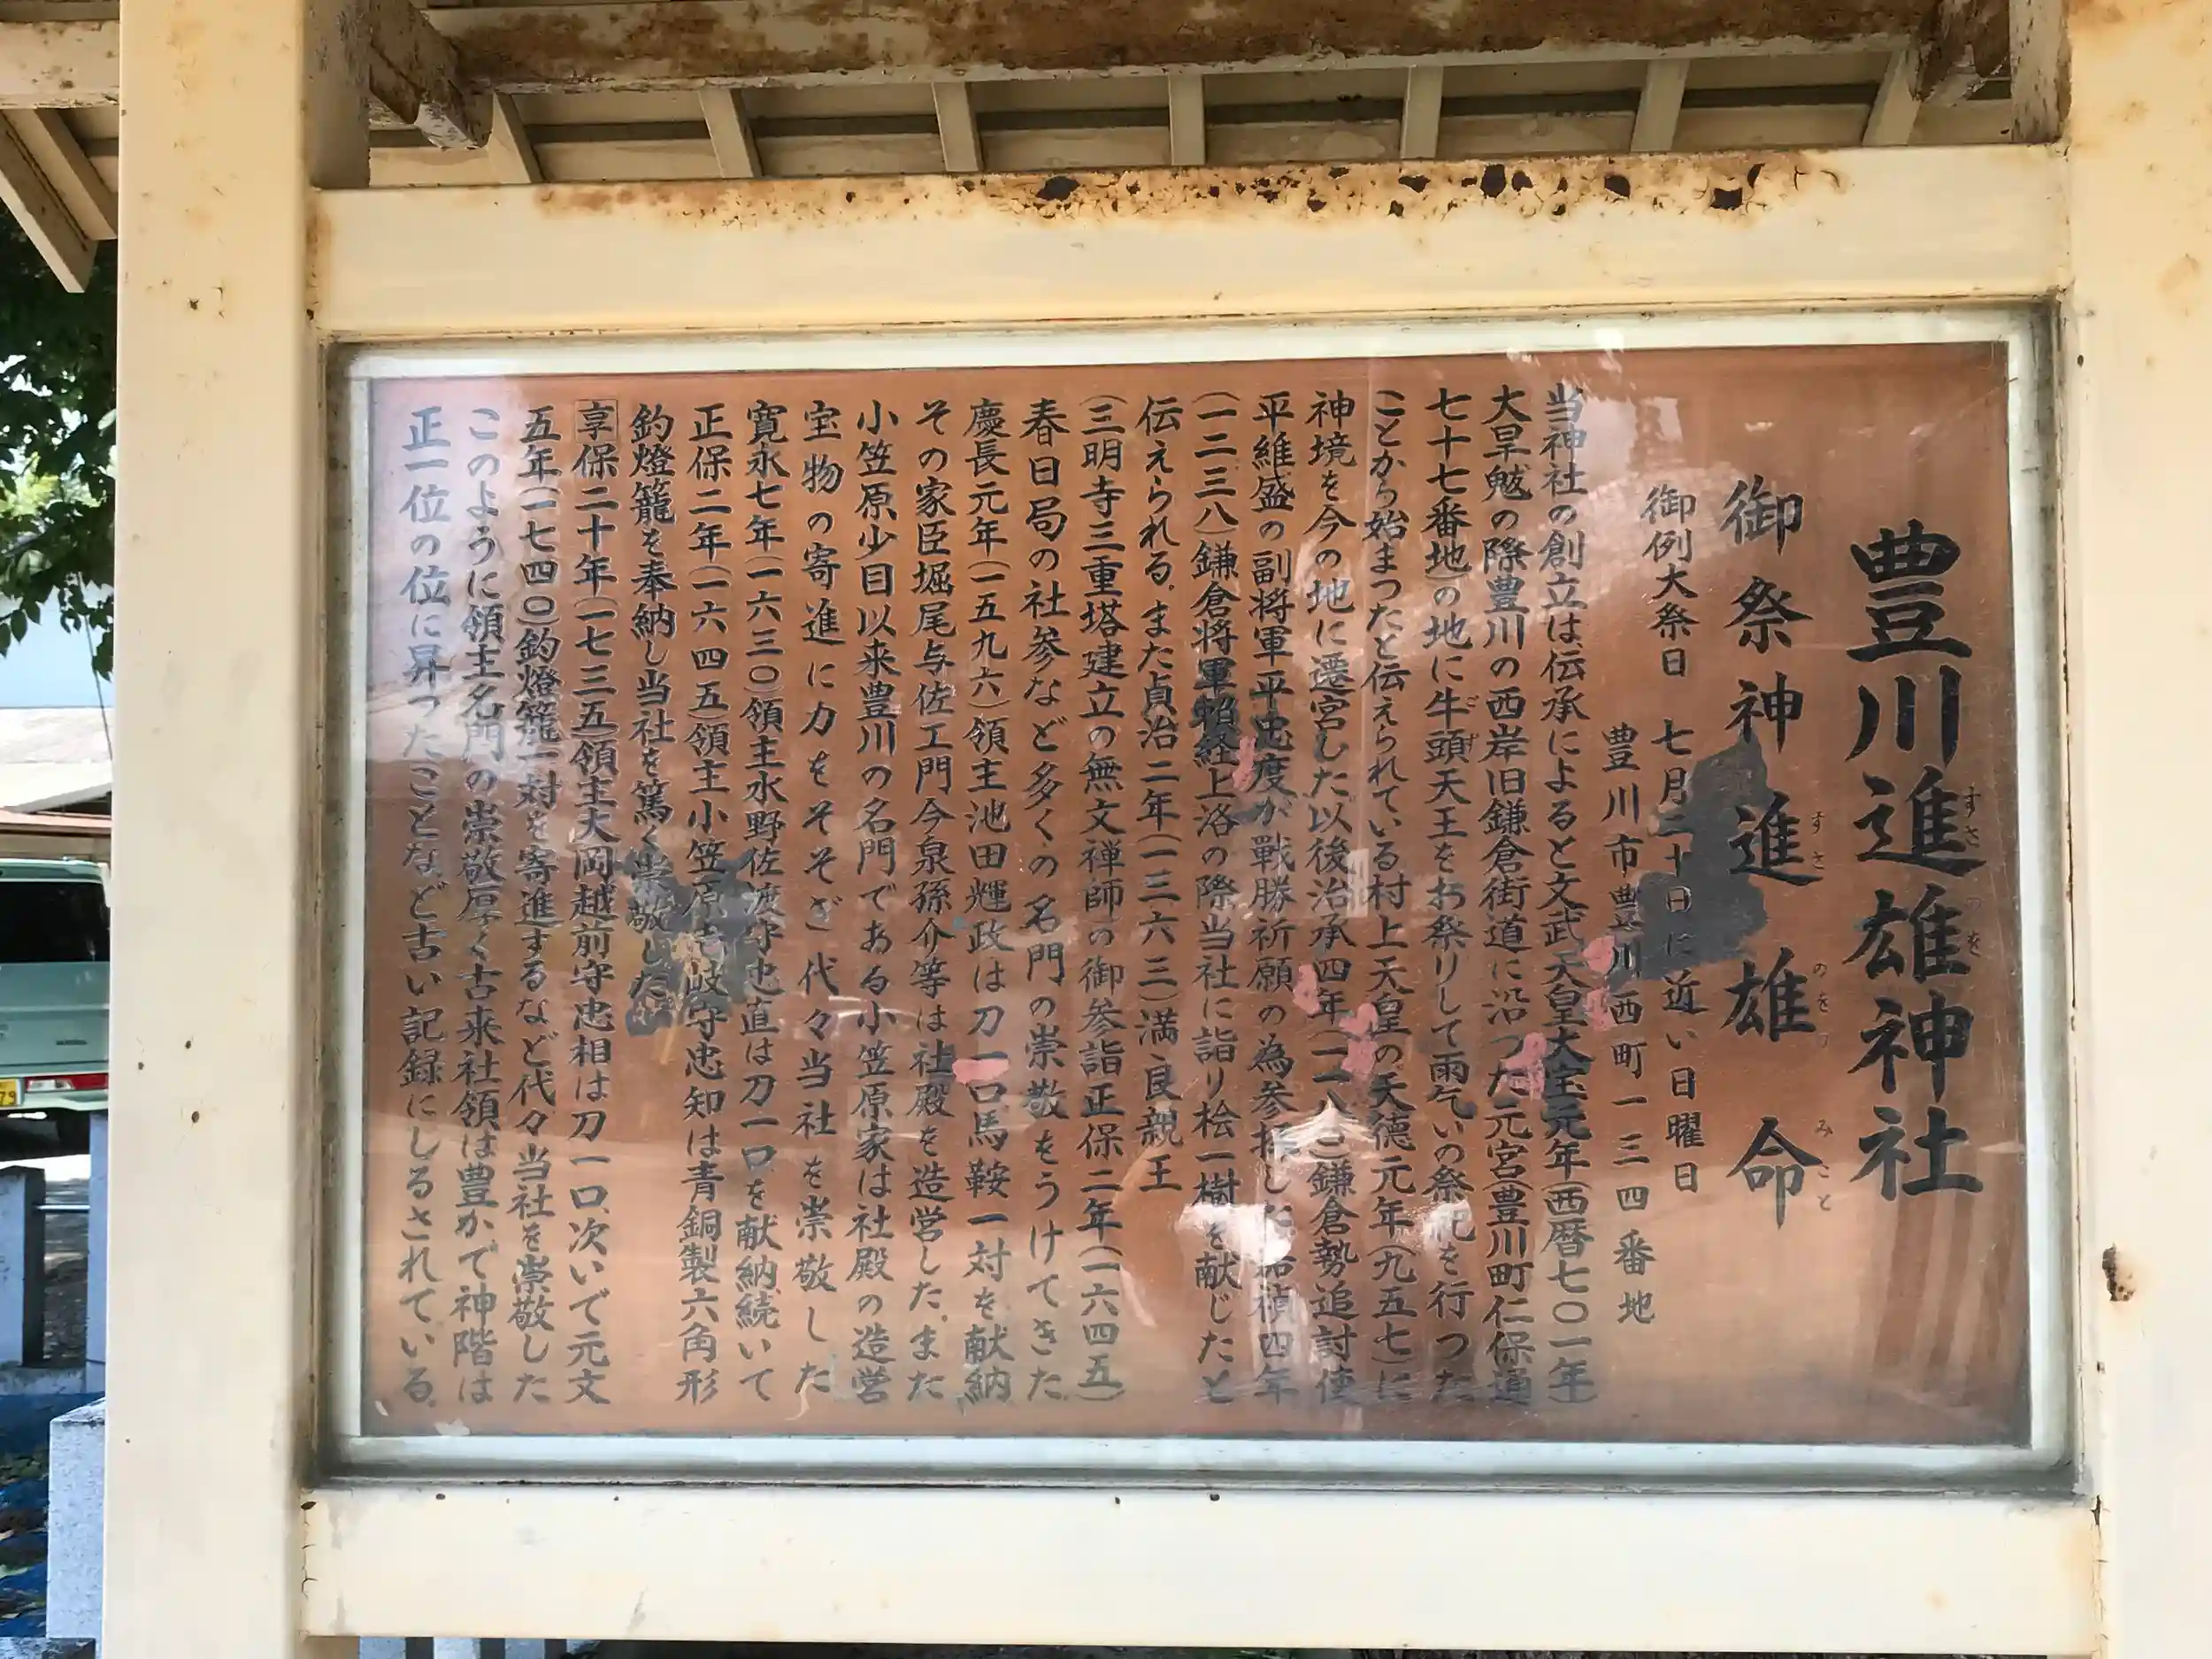 豊川進雄神社
すさのを
御祭神 進雄命
すさ のをの みこと
御例大祭日 七月二十日に近い日曜日
豊川市豊川西町一三四番地
当神社の創立は伝承によると文武天皇大宝元年(西暦七〇一年)
大旱魃の際豊川の西岸旧鎌倉街道に沿つた元宮(豊川町仁保通
七十七番地)の地に牛頭天王をお祭りして雨乞いの祭祀を行つた
ごず
ことから始まつたと伝えられている村上天皇の天徳元年(九五七)に
神境を今の地に遷宮した以後治承四年(一一八〇)鎌倉勢追討使
平維盛の副将軍平忠度が戦勝祈願の為参拝した嘉禎四年
(一二三八)鎌倉将軍頼経上洛の際当社に詣り桧一樹を献じたと
伝えられる.また貞治二年(一三六三)満良親王
(三明寺三重塔建立の無文禅師の御参詣正保二年(一六四五)
春日局の社参など多くの名門の崇敬をうけてきた
慶長元年(一五九六)領主池田輝政は刀一口馬鞍一対を献納
その家臣堀尾与佐エ門今泉孫介等は社殿を造営した.また
小笠原少目以来豊川の名門である小笠原家は社殿の造営
宝物の寄進に力をそそぎ代々当社を崇敬した
寛永七年(一六三〇)領主水野佐渡守忠直は刀一口を献納続いて
正保二年(一六四五)領主小笠原壱岐守忠知は青銅製六角形
釣燈籠を奉納し当社を篤く崇敬した
享保二十年(一七三五)領主大岡越前守忠相は刀一口次いで元文
五年(一七四〇)釣燈籠一対を寄進するなど代々当社を崇敬した
このように領主名門の崇敬厚く古来社領は豊かで神階は
正一位の位に昇つたことなど古い記録にしるされている.
79